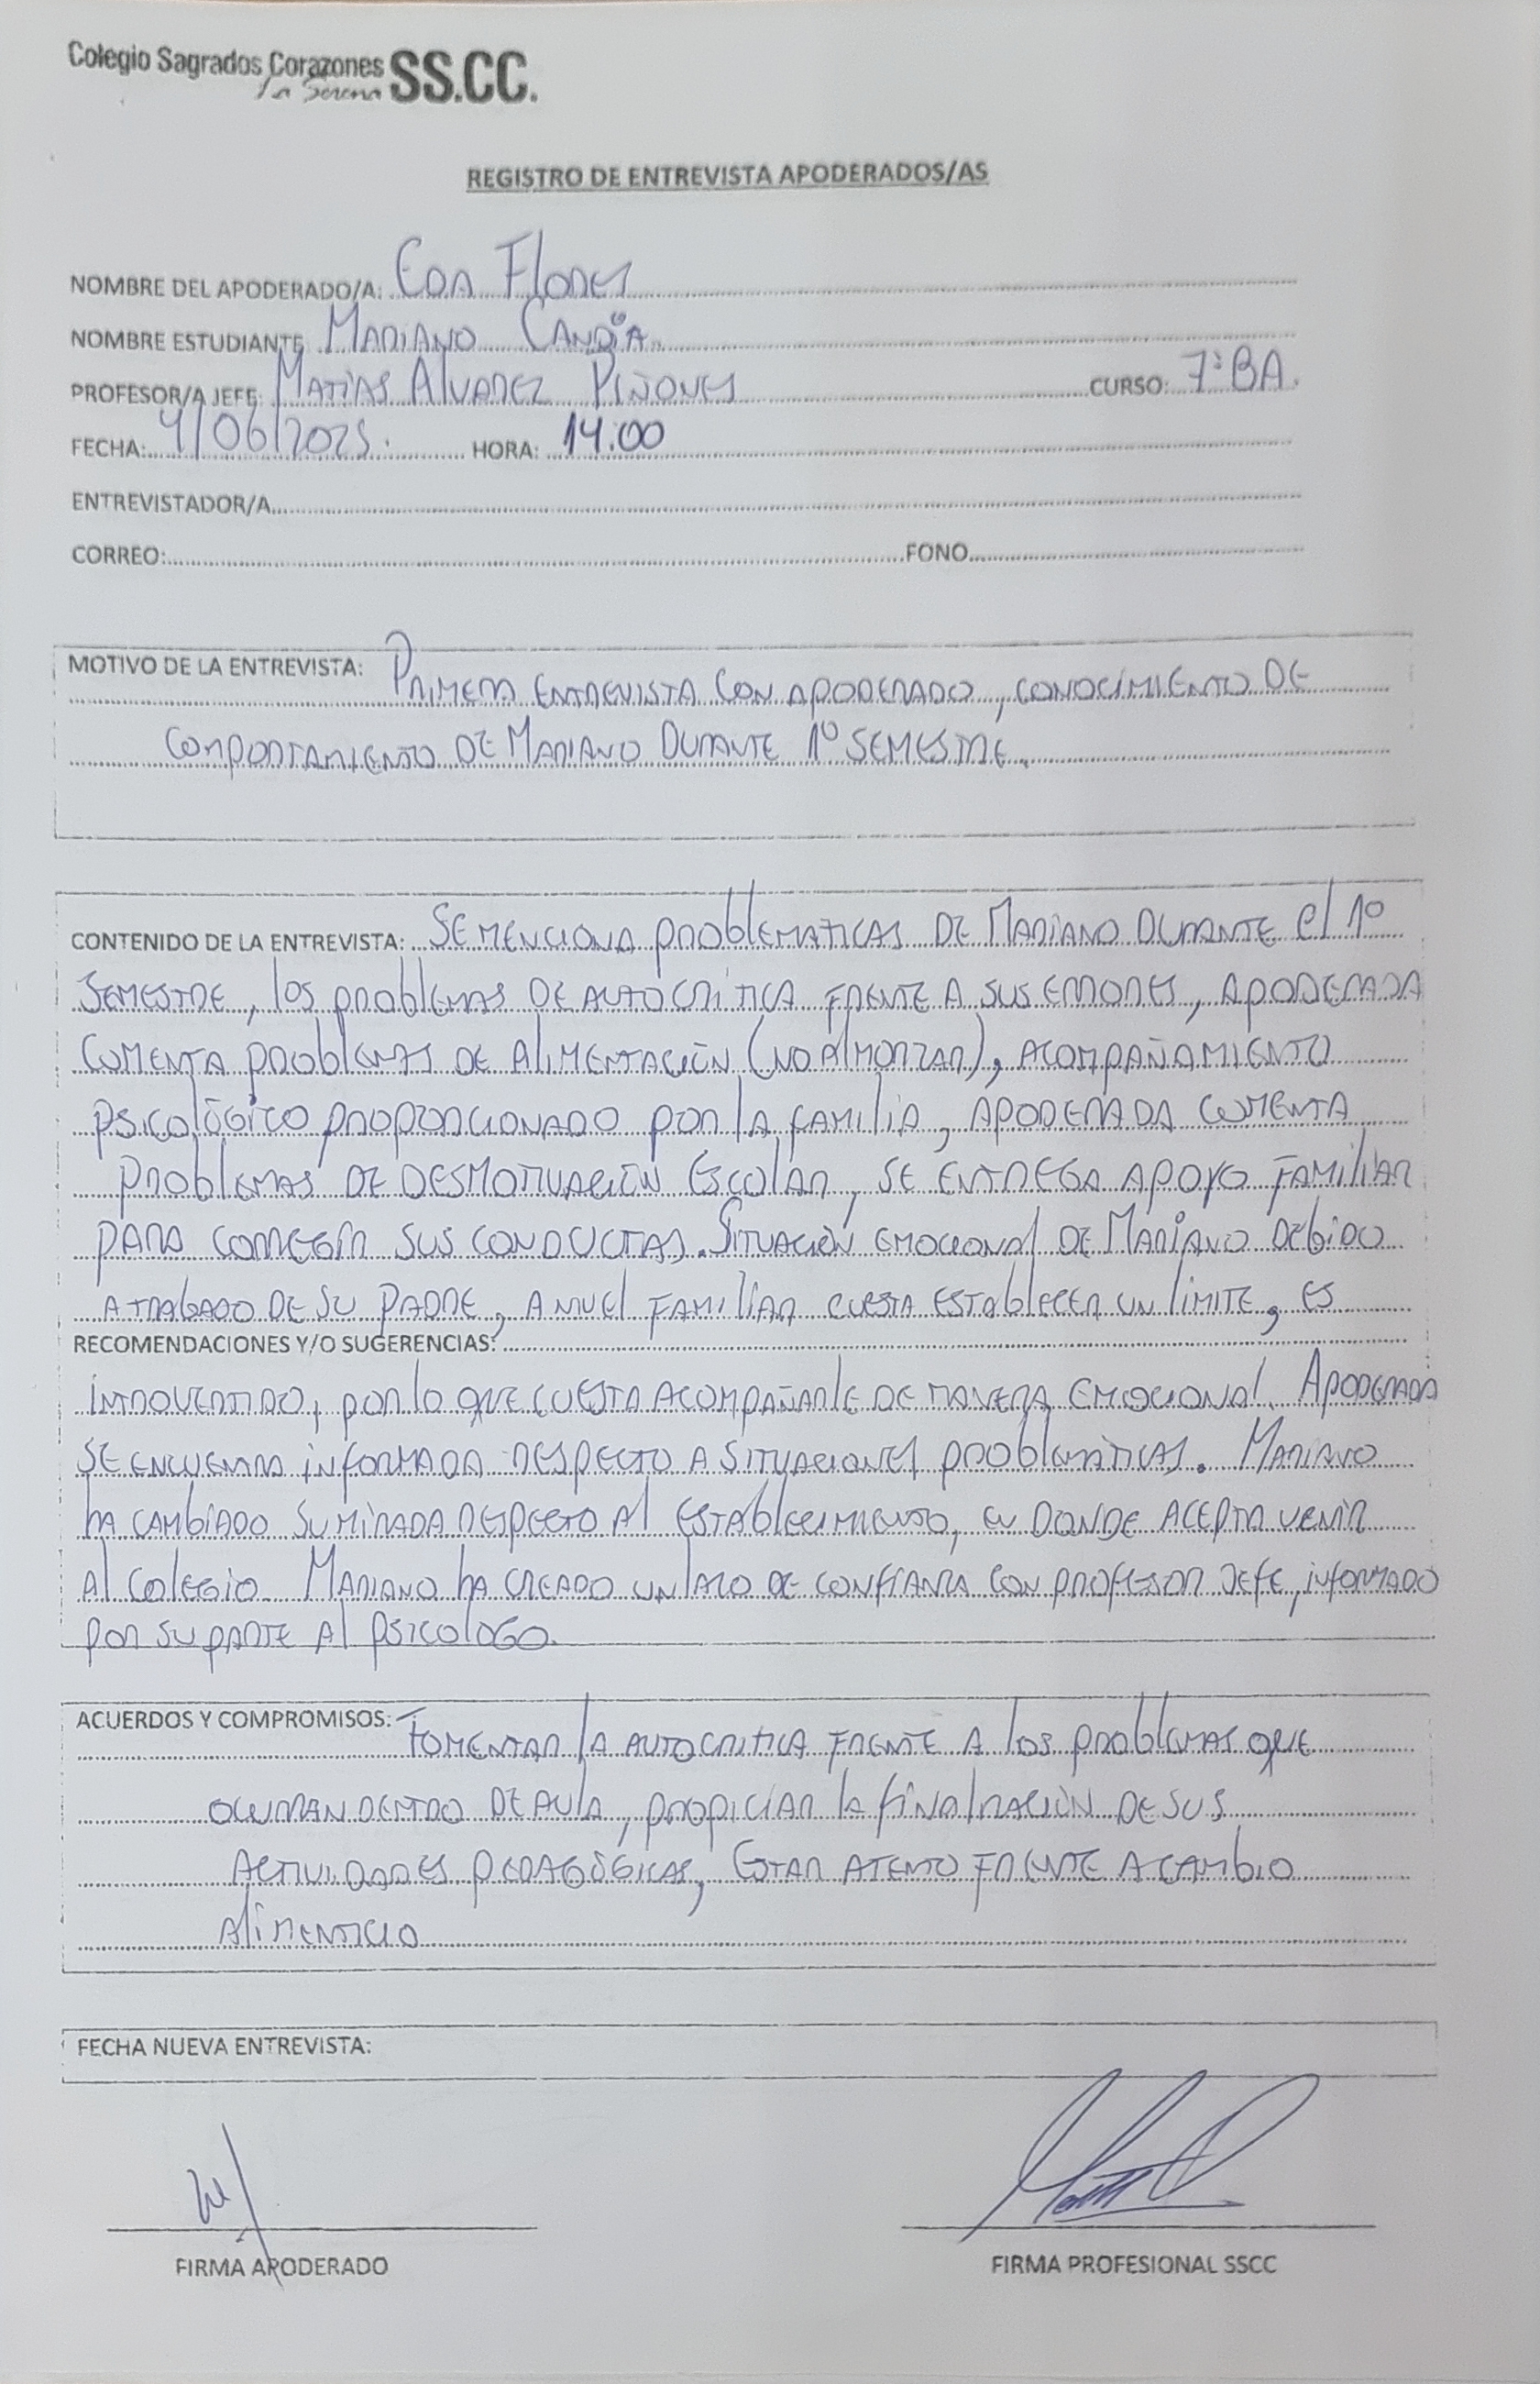 Colegio Sagrados Corazones SS.CC.
La Serena
REGISTRO DE ENTREVISTA APODERADOS/AS
NOMBRE DEL APODERADO/A: EDA FLORES
NOMBRE ESTUDIANTE MARIANO CANDIA.
PROFESOR/A JEFE: MATÍAS ALVAREZ PIÑONES CURSO: 7°BA.
FECHA: 4/06/2025. HORA: 14:00
ENTREVISTADOR/A
CORREO: FONO
MOTIVO DE LA ENTREVISTA: PRIMERA ENTREVISTA CON APODERADO, CONOCIMIENTO DE
COMPORTAMIENTO DE MARIANO DURANTE 1° SEMESTRE.
CONTENIDO DE LA ENTREVISTA: SE MENCIONA PROBLEMATICAS DE MARIANO DURANTE El 1°
SEMESTRE, los PROBLEMAS DE AUTOCRITICA FRENTE A SUS ERRORES, APODERADA
COMENTA PROBLEMAS DE ALIMENTACIÓN (NO ALMORZAR), ACOMPAÑAMIENTO
PSICOLÓGICO PROPORCIONADO POR LA FAMILIA, APODERADA COMENTA
PROBLEMAS DE DESMOTIVACIÓN ESCOLAR, SE ENTREGA APOYO FAMILIAR
PARA CORREGIR SUS CONDUCTAS. SITUACIÓN EMOCIONAL DE MARIANO DEBIDO
A TRABAJO DE SU PADRE, A NIVEL FAMILIAR CUESTA ESTABLECER UN LÍMITE, ES
RECOMENDACIONES Y/O SUGERENCIAS:
INTROVERTIDO, POR LO QUE CUESTA ACOMPAÑARLE DE MANERA EMOCIONAL. APODERADA
SE ENCUENTRA INFORMADA RESPECTO A SITUACIONES PROBLEMÁTICAS. MARIANO
HA CAMBIADO SU MIRADA RESPECTO Al ESTABLECIMIENTO, EN DONDE ACEPTA VENIR
Al COLEGIO. MARIANO HA CREADO UN LAZO DE CONFIANZA CON PROFESOR JEFE, INFORMADO
POR SU PARTE Al PSICOLOGO.
ACUERDOS Y COMPROMISOS: FOMENTAR LA AUTOCRITICA FRENTE A LOS PROBLEMAS QUE
OCURRAN DENTRO DE AULA, PROPICIAR LA FINALIZACIÓN DE SUS
ACTIVIDADES PEDAGÓGICAS, ESTAR ATENTO FRENTE A CAMBIO
ALIMENTICIO
FECHA NUEVA ENTREVISTA:
FIRMA APODERADO FIRMA PROFESIONAL SSCC